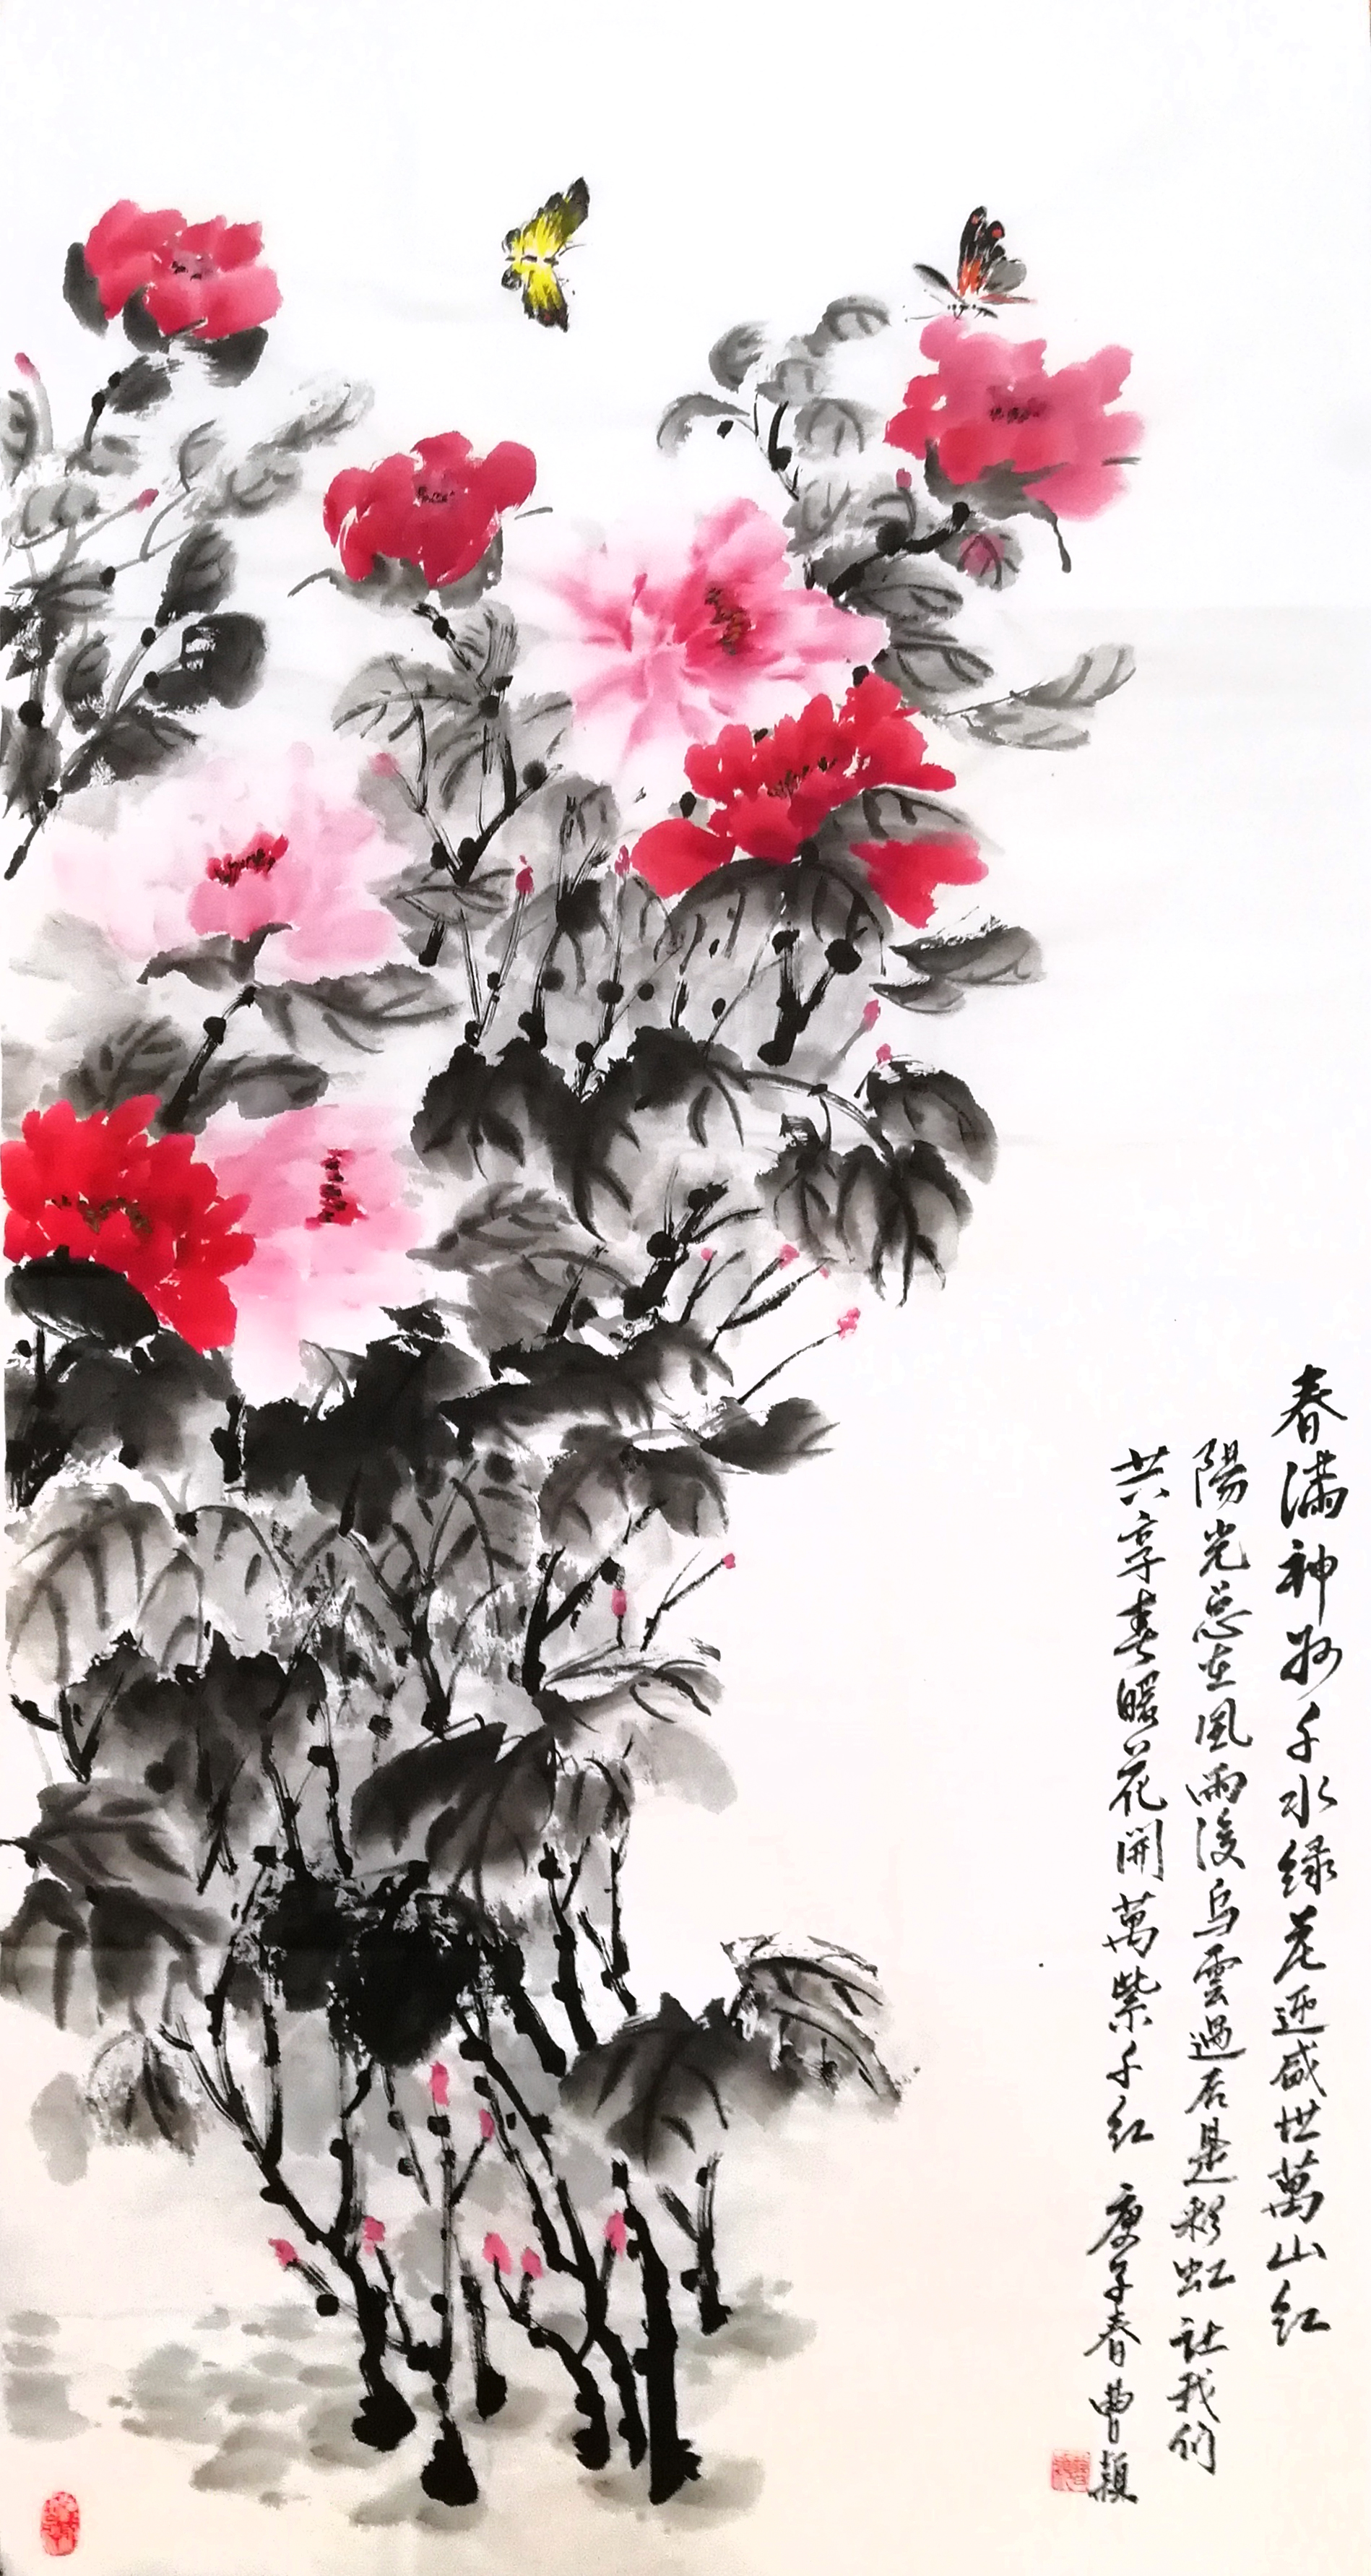 春满神州千水绿花迎盛世萬山红
陽光总在風雨後乌雲過后是彩虹让我们
共享春暖花開萬紫千红 庚子春曹颖